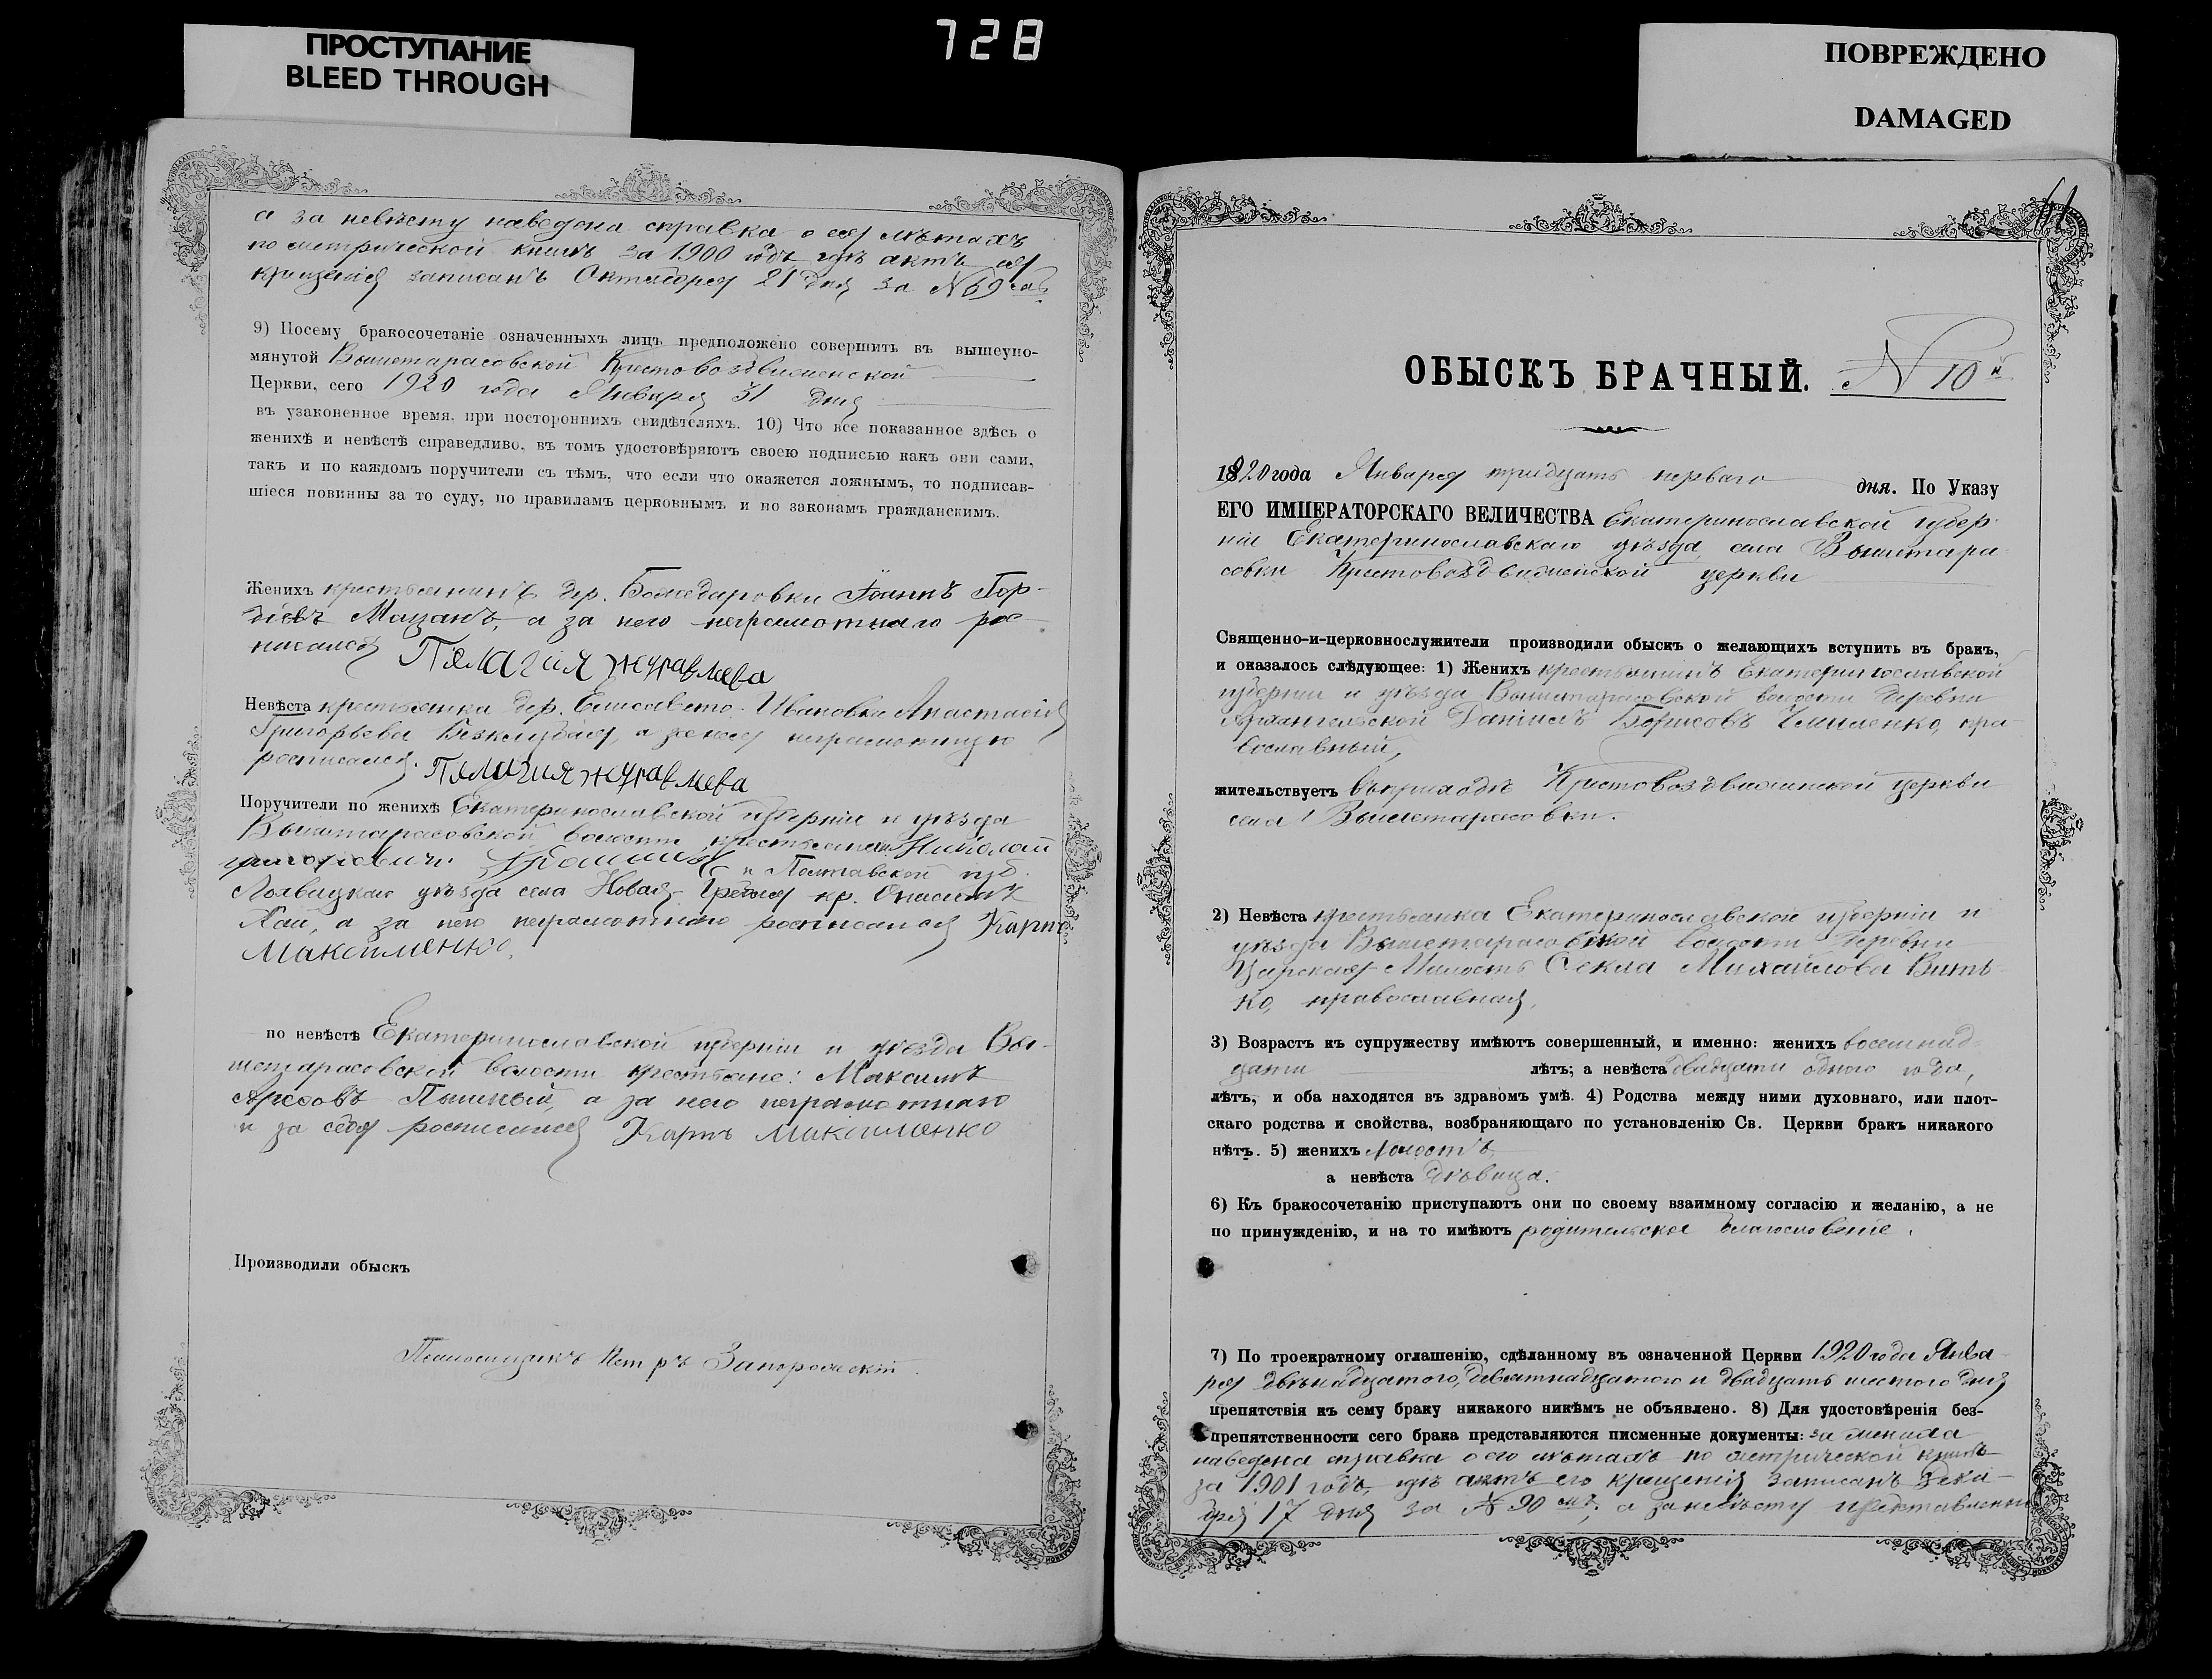 ПРОСТУПАНИЕ
BLEED THROUGH
728
ПОВРЕЖДЕНО
DAMAGED
а за невѣсту наведена справка о ея лѣтахъ
по метрической книгѣ за 1900 годъ гдѣ актъ ея
крещенія записанъ Октября 21 дня за № 69
9) Посему бракосочетаніе означенныхъ лицъ предположено совершить въ вышеупо-
мянутой Вышетарасовской Крестовоздвиженской
Церкви, сего 1920 года Января 31 дня
въ узаконенное время, при постороннихъ свидѣтеляхъ. 10) Что все показанное здѣсь о
женихѣ и невѣстѣ справедливо, въ томъ удостовѣряютъ своею подписью какъ они сами,
такъ и по каждомъ поручители съ тѣмъ, что если что окажется ложнымъ, то подписав-
шіеся повинны за то суду, по правиламъ церковнымъ и по законамъ гражданскимъ.
Женихъ крестьянинъ дер. Іоаннъ Гор-
діевъ Мацанъ, а за него неграмотнаго рос-
писался Пелагия Журавлева
Невѣста крестьянка дер. Елисавето-Ивановки Анастасія
Григорьева а за нее неграмотную
росписался Пялагия журавлева
Поручители по женихѣ Екатеринославской губерніи и уѣзда
Вышетарасовской волости крестьяне Николай
и Полтавской губ.
уѣзда села Новая- кр.
а за него неграмотнаго росписался Карпъ
Максименко.
по невѣстѣ Екатеринославской губерніи и уѣзда Вы-
шетарасовской волости крестьяне: Максимъ
а за него неграмотнаго
и за себя росписался Карпъ Максименко
Производили обыскъ
Псаломщикъ Петръ
61
ОБЫСКЪ БРАЧНЫЙ. № 10й
1920 года Января тридцать перваго дня. По Указу
ЕГО ИМПЕРАТОРСКАГО ВЕЛИЧЕСТВА Екатеринославской губер-
ніи Екатеринославскаго уѣзда села Вышетара-
совки Крестовоздвиженской церкви
Священно-и-церковнослужители производили обыскъ о желающихъ вступить въ бракъ,
и оказалось слѣдующее: 1) Женихъ крестьянинъ Екатеринославской
губерніи и уѣзда Вышетарасовской волости деревни
Архангельской Даніилъ Борисовъ пра-
вославный,
жительствуетъ въ приходѣ Крестовоздвиженской церкви
села Вышетарасовки.
2) Невѣста крестьянка Екатеринославской губерніи и
уѣзда Вышетарасовской волости деревни
Царская-Милость Ѳекла Михайлова Вить-
ко, православная,
3) Возрастъ къ супружеству имѣютъ совершенный, и именно: женихъ восемнад-
цати лѣтъ; а невѣста двадцати одного года,
лѣтъ, и оба находятся въ здравомъ умѣ. 4) Родства между ними духовнаго, или плот-
скаго родства и свойства, возбраняющаго по установленію Св. Церкви бракъ никакого
нѣтъ. 5) женихъ холостъ,
а невѣста дѣвица.
6) Къ бракосочетанію приступаютъ они по своему взаимному согласію и желанію, а не
по принужденію, и на то имѣютъ родительское благословеніе.
7) По троекратному оглашенію, сдѣланному въ означенной Церкви 1920 года Янва-
ря двѣнадцатого, девятнадцатого и двадцать шестого дня
препятствія къ сему браку никакого никѣмъ не объявлено. 8) Для удостовѣренія без-
препятственности сего брака представляются писменные документы: за жениха
наведена справка о его лѣтахъ по метрической книгѣ
за 1901 годъ, гдѣ актъ его крещенія записанъ Дека-
бря 17 дня за № 90 мъ, а за невѣсту представлены